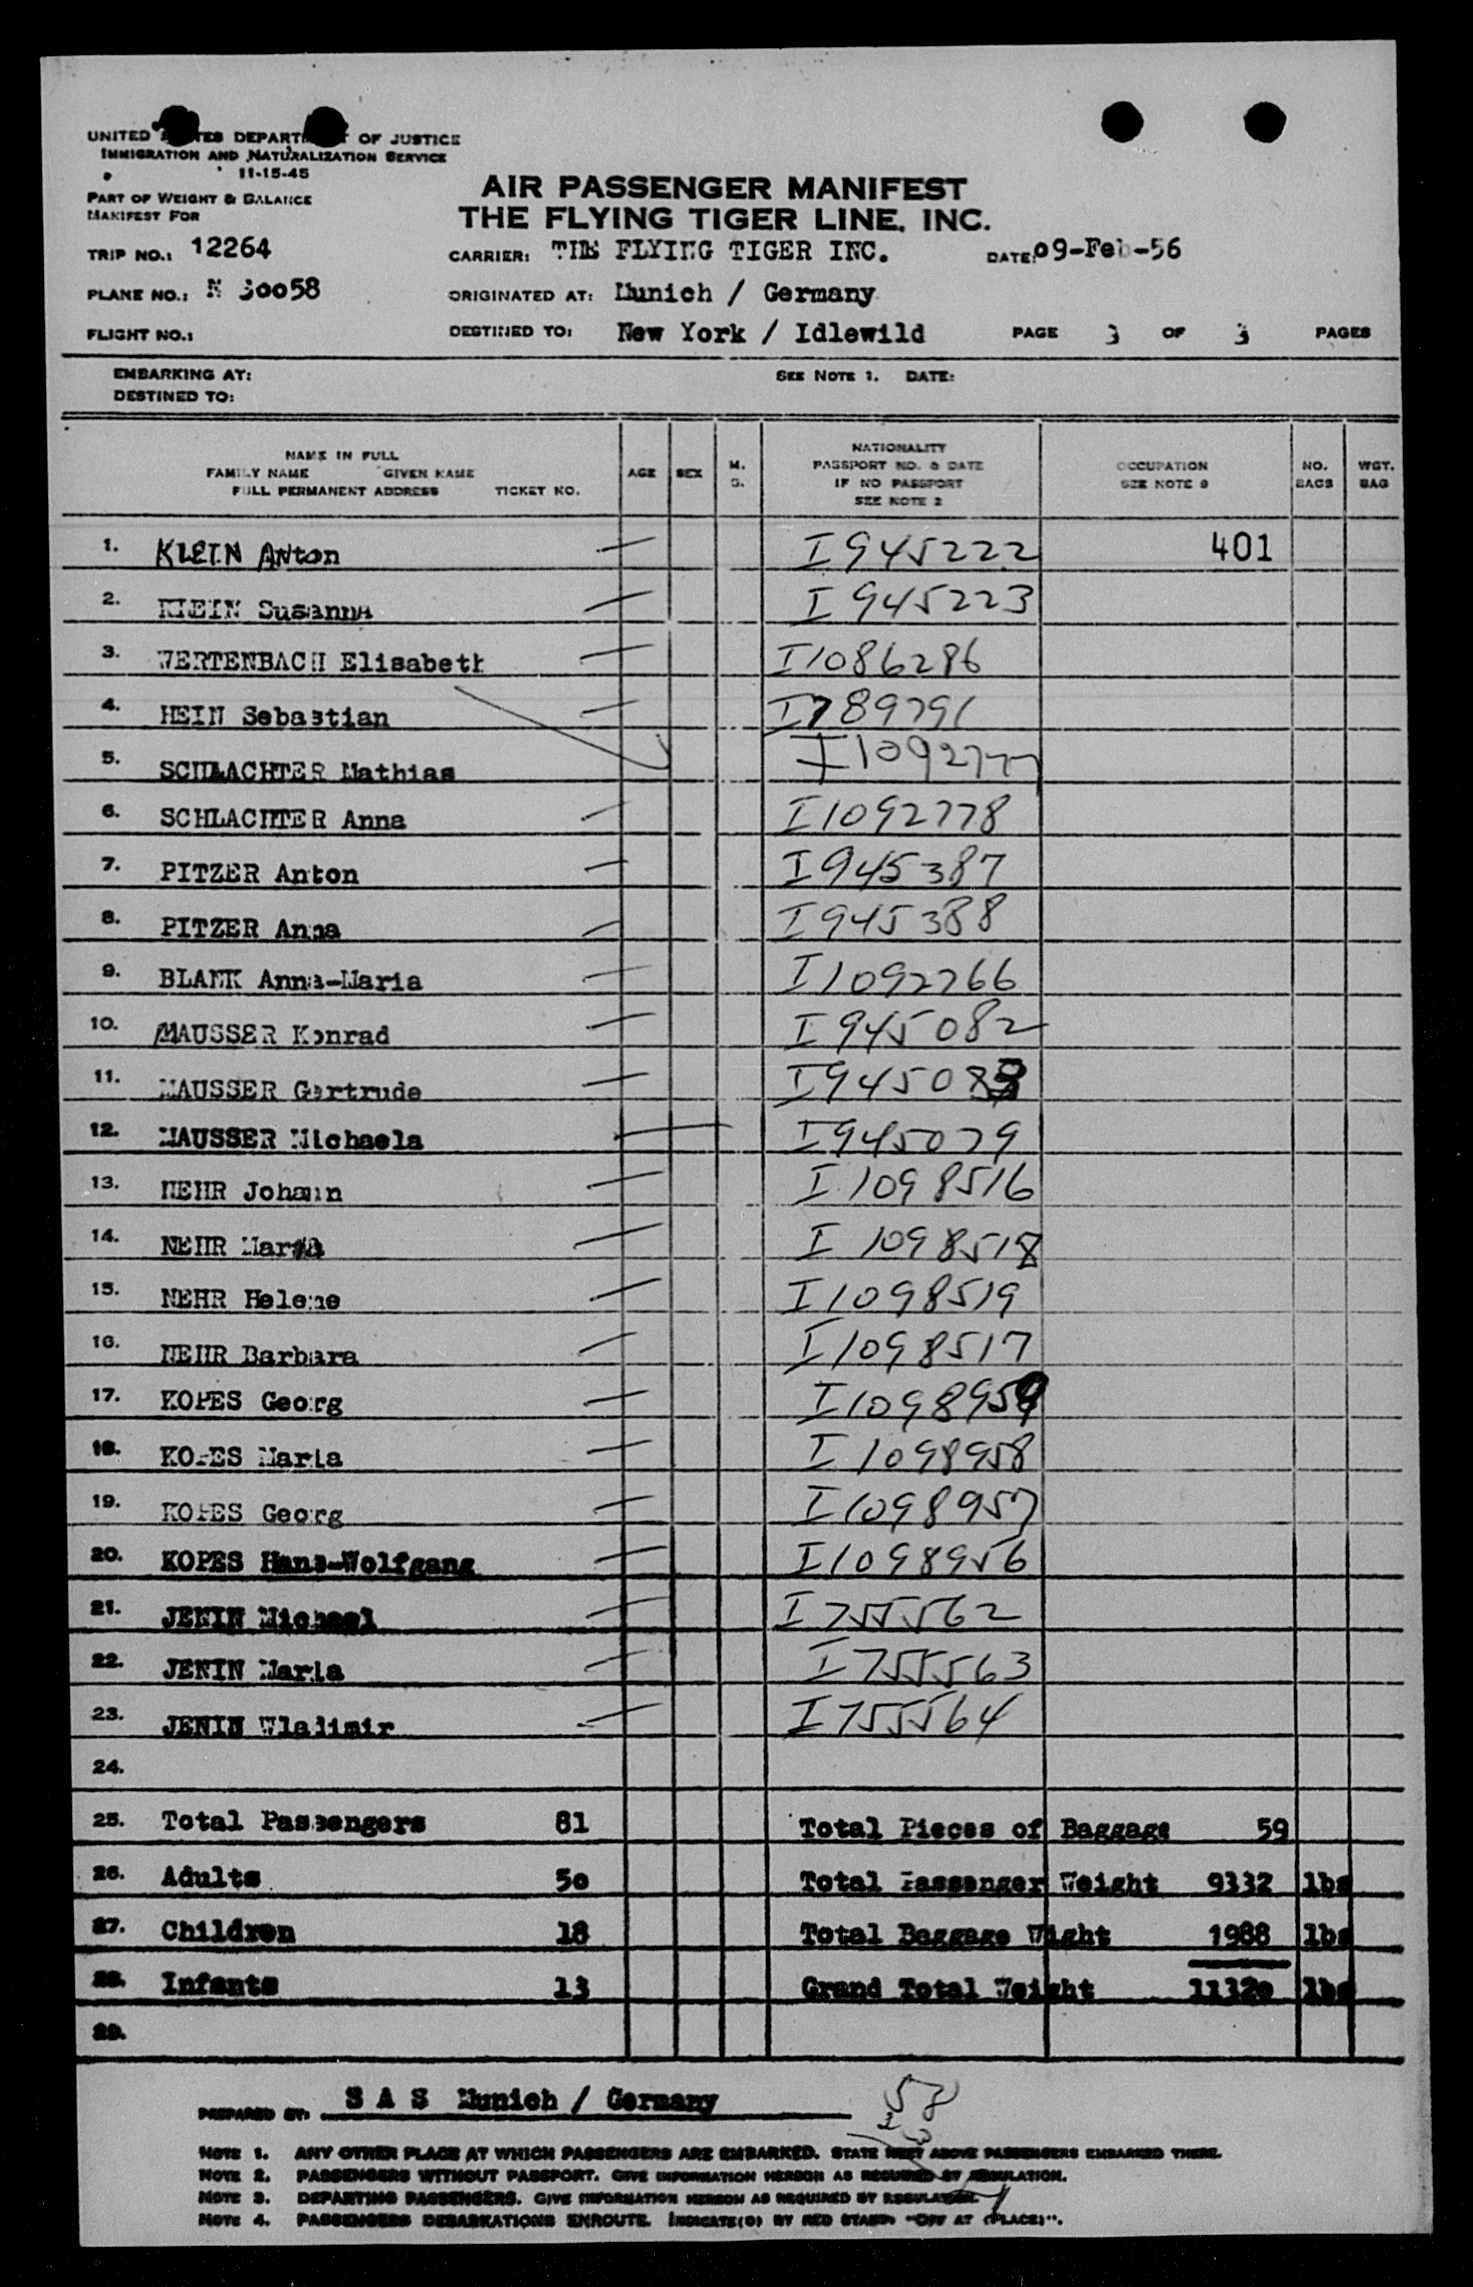 UNITED STATES DEPARTMENT OF JUSTICE
IMMIGRATION AND NATURALIZATION SERVICE
11-15-45
PART OF WEIGHT & BALANCE
MANIFEST FOR
AIR PASSENGER MANIFEST
THE FLYING TIGER LINE, INC.
TRIP NO.: 12264 CARRIER: THE FLYING TIGER INC. DATE: 09-Feb-56
PLANE NO.: N 30058 ORIGINATED AT: Munich / Germany
FLIGHT NO.: DESTINED TO: New York / Idlewild PAGE 3 OF 3 PAGES
EMBARKING AT: SEE NOTE 1. DATE:
DESTINED TO:
NAME IN FULL
FAMILY NAME GIVEN NAME
FULL PERMANENT ADDRESS TICKET NO.
AGE SEX M. S.
NATIONALITY
PASSPORT NO. & DATE
IF NO PASSPORT
SEE NOTE 2
OCCUPATION
SEE NOTE 3
NO. BAGS
WGT. BAG
1. KLEIN Anton — I 945222 401
2. KLEIN Susanna — I 945223
3. WERTENBACH Elisabeth — I1086286
4. HEIN Sebastian — I789791
5. SCHLACHTER Mathias I1092777
6. SCHLACHTER Anna — I1092778
7. PITZER Anton — I945387
8. PITZER Anna — I945388
9. BLANK Anna-Maria — I1092766
10. MAUSSER Konrad — I945082
11. MAUSSER Gertrude — I945083
12. MAUSSER Michaela — I945079
13. NEHR Johann — I 1098516
14. NEHR Maria — I 1098518
15. NEHR Helene — I1098519
16. NEHR Barbara — I1098517
17. KOPES Georg — I1098959
18. KOPES Maria — I 1098958
19. KOPES Georg — I1098957
20. KOPES Hans-Wolfgang — I1098956
21. JENIN Michael — I 755562
22. JENIN Maria — I755563
23. JENIN Wladimir — I755564
24.
25. Total Passengers 81 Total Pieces of Baggage 59
26. Adults 50 Total Passenger Weight 9332 lbs
27. Children 18 Total Baggage Wight 1988 lbs
28. Infants 13 Grand Total Weight 11320 lbs
29.
PREPARED BY: S A S Munich / Germany
58
NOTE 1. ANY OTHER PLACE AT WHICH PASSENGERS ARE EMBARKED. STATE NEXT ABOVE PASSENGERS EMBARKED THERE.
NOTE 2. PASSENGERS WITHOUT PASSPORT. GIVE INFORMATION HEREON AS REQUIRED BY REGULATION.
NOTE 3. DEPARTING PASSENGERS. GIVE INFORMATION HEREON AS REQUIRED BY REGULATION.
NOTE 4. PASSENGERS DEBARKATIONS ENROUTE. INDICATE(D) BY RED STAMP: "OFF AT (PLACE)".